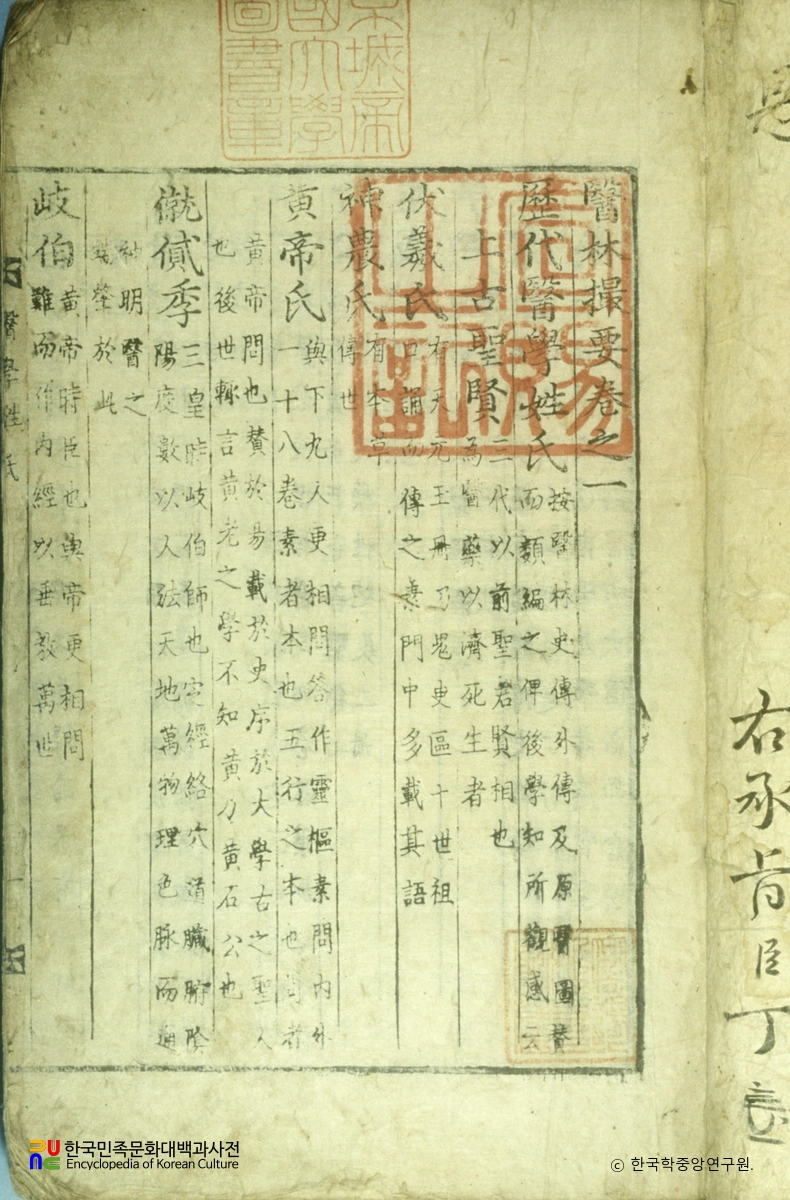 醫林撮要卷之一
歷代醫學姓氏 按醫林史傳外傳及原醫圖贊
而類編之俾後學知所觀感云
上古聖賢 三代以前聖君賢相也
為醫藥以濟死生者
伏羲氏 有天元玉冊乃鬼臾區十世祖
口誦而傳之素問中多載其語
神農氏 有本草
傳世
黃帝氏 與下九人更相問答作靈樞素問內外
一十八卷素者本也五行之本也問者
黃帝問也贊於易載於史序於大學古之聖人
也後世輒言黃老之學不知黃乃黃石公也
僦貸季 三皇時岐伯師也定經絡穴道臟腑陰
陽度數以人法天地萬物理色脉而通
神明醫之
肇於此
岐伯 黃帝時臣也與帝更相問
難而作內經以垂教萬世
醫學姓氏
京城帝
國大學
圖書章
右承旨臣丁
한국민족문화대백과사전
Encyclopedia of Korean Culture
ⓒ 한국학중앙연구원.